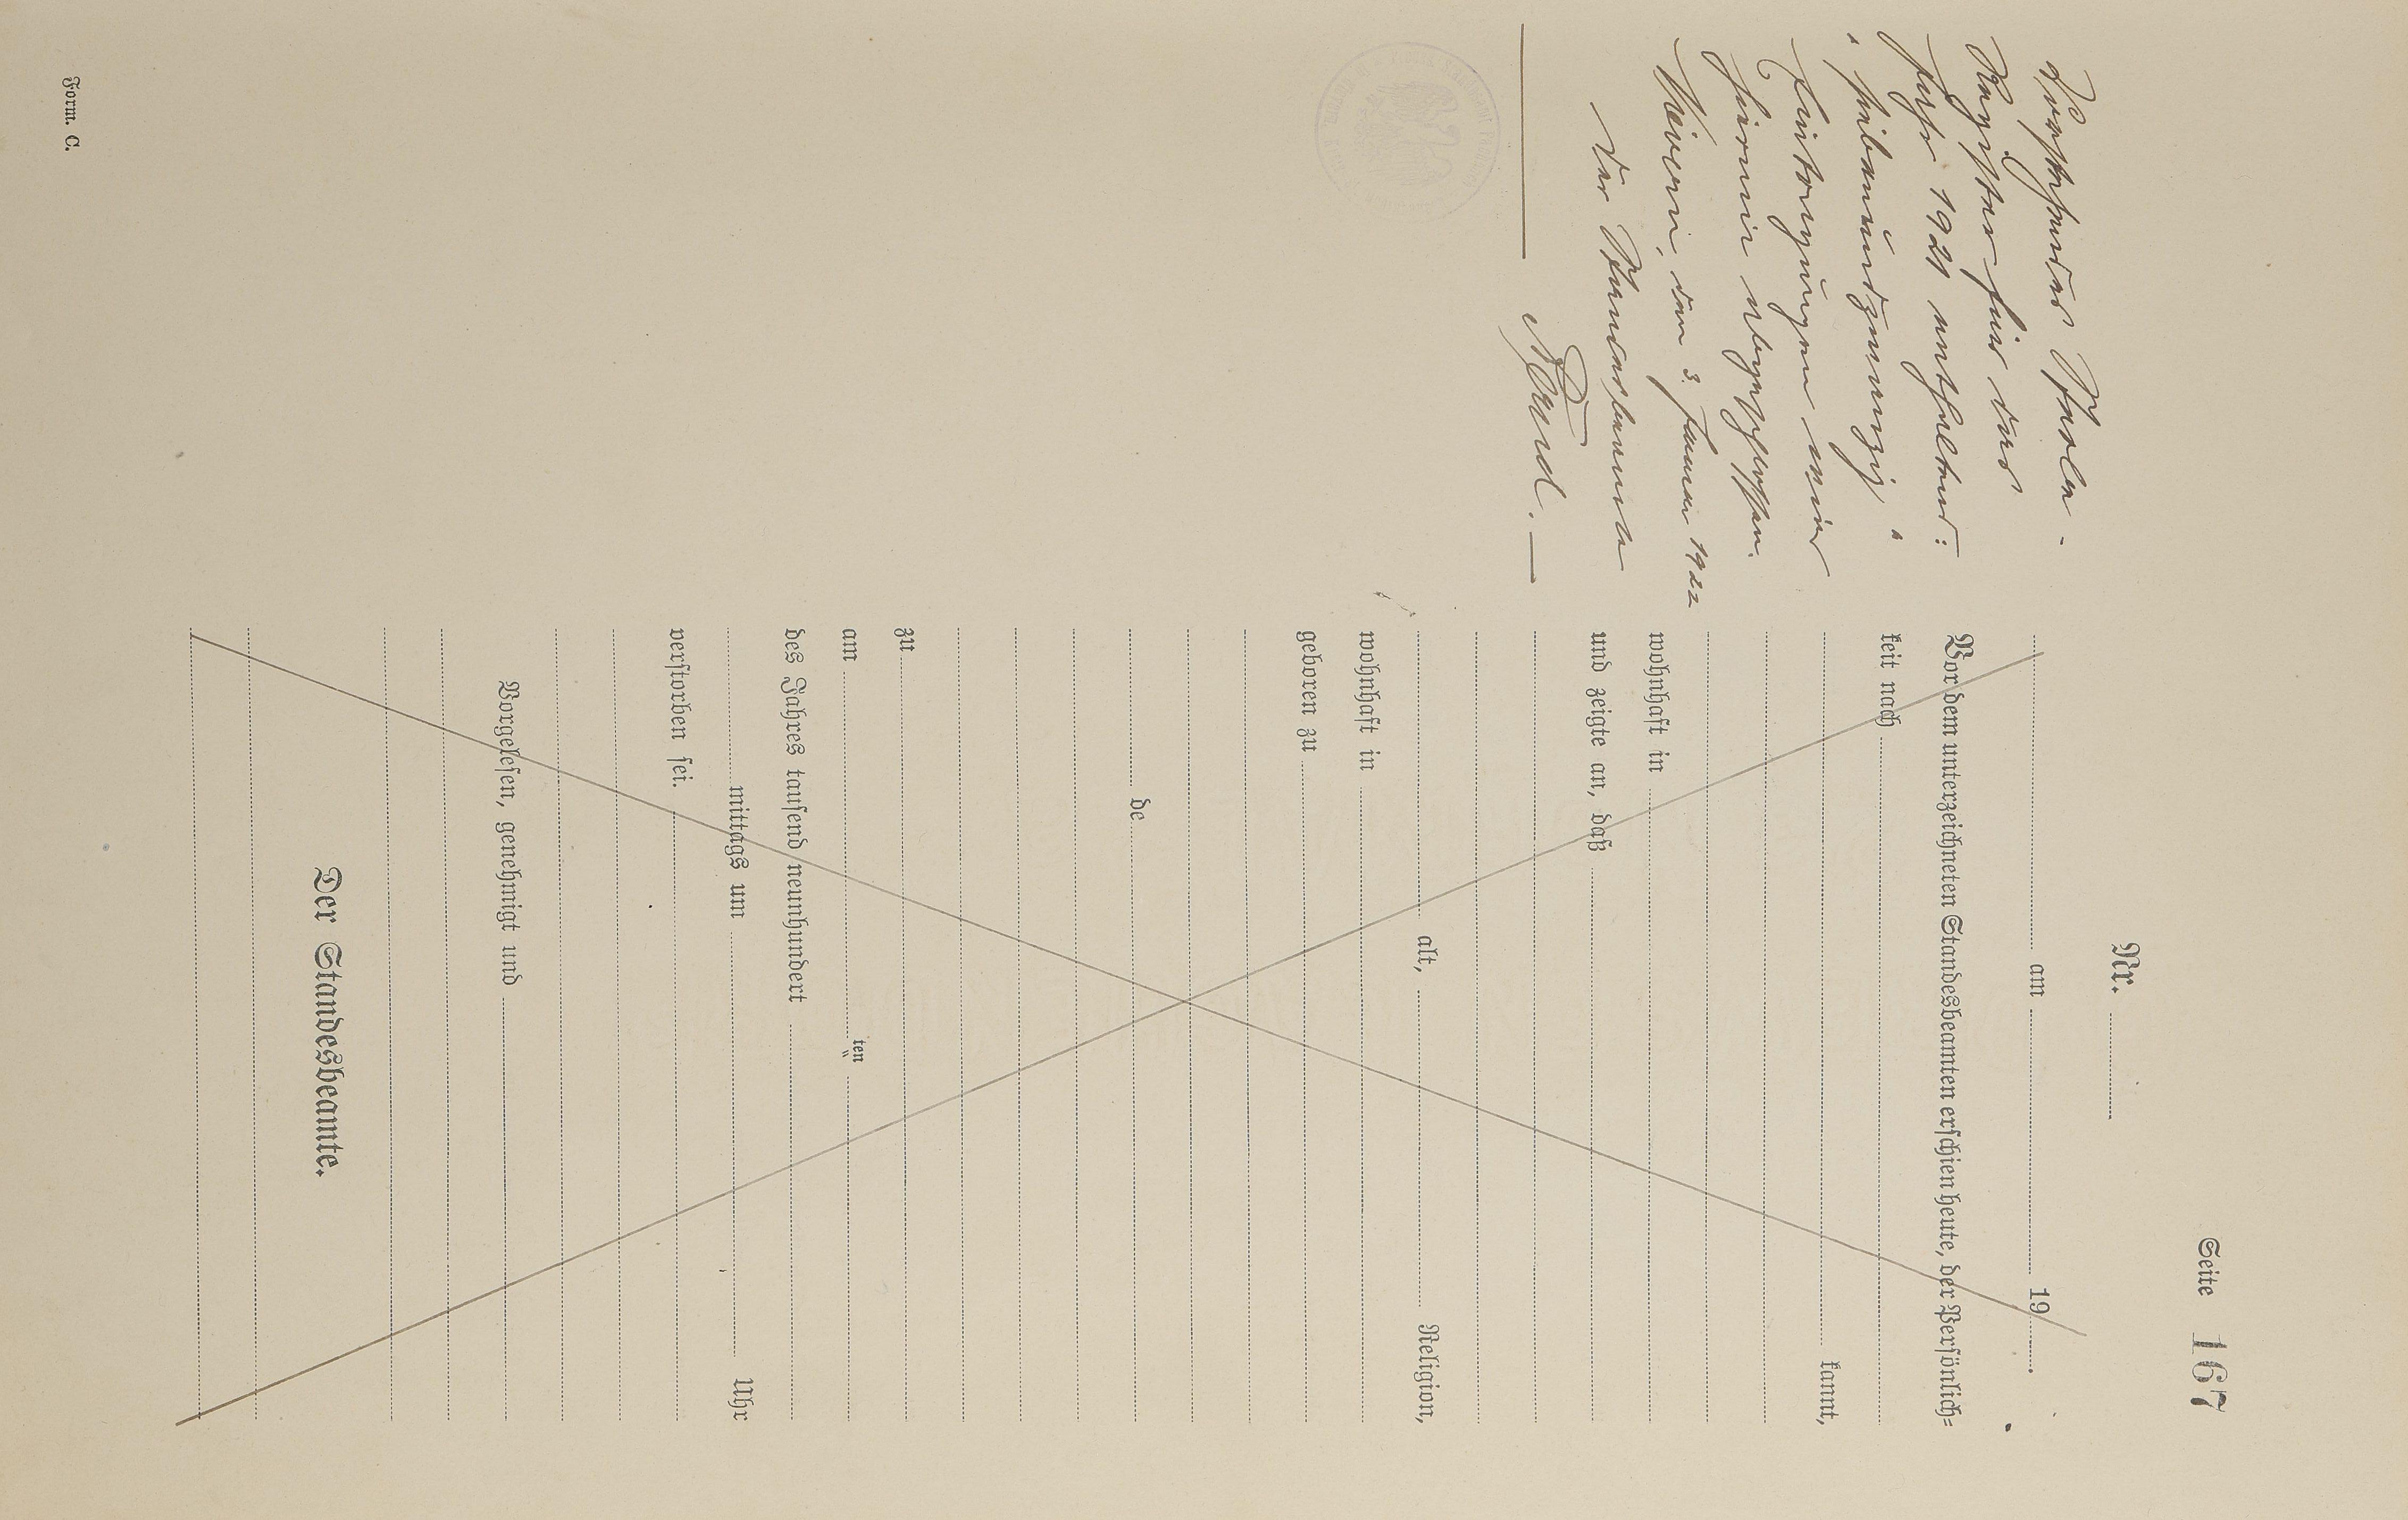 Seite 167
Nr.
Vorstehendes Sterbe-
Register für das
Jahr 1921 enthaltend:
"siebenundzwanzig"
Eintragungen wird
hiermit abgeschlossen.
den 3. Januar 1922
Der Standesbeamte
am 19 .
Vor dem unterzeichneten Standesbeamten erschien heute, der Persönlich-
keit nach
kannt,
wohnhaft in
und zeigte an, daß
alt, Religion,
wohnhaft in
geboren zu
de
zu
am ten
des Jahres tausend neunhundert
mittags um Uhr
verstorben sei.
Vorgelesen, genehmigt und
Der Standesbeamte.
Form. C.